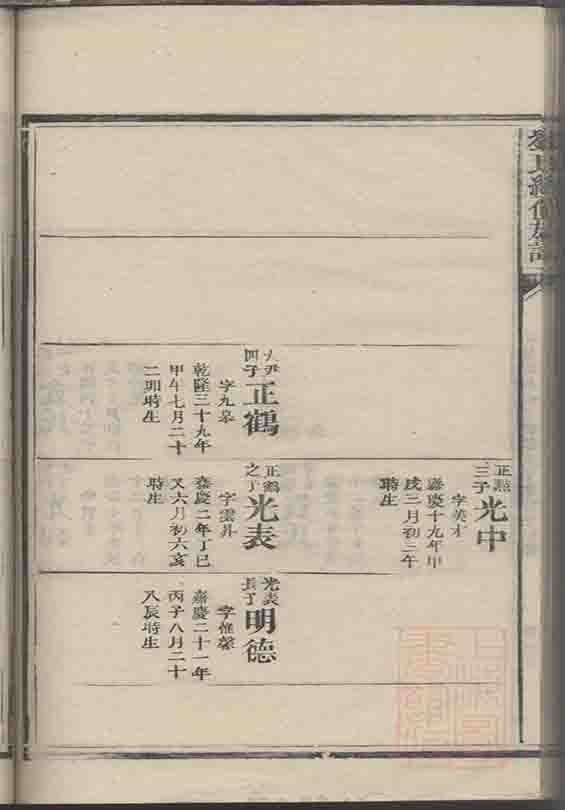 正㸃
三子
光中
字英才
嘉慶十九年甲
戌三月初三午
時生
四子
正鶴
字九皋
乾隆三十九年
甲午七月二十
二卯時生
正鶴
之子
光表
字雲升
嘉慶二年丁巳
又六月初六亥
時生
光表
長子
明德
字惟馨
嘉慶二十一年
丙子八月二十
八辰時生